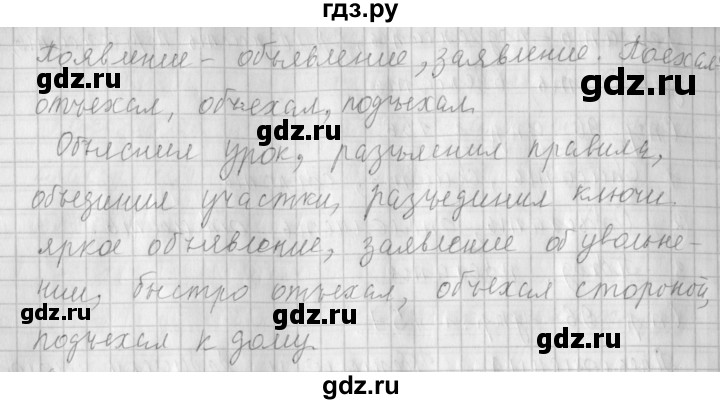 гдз.ру
Появление - объявление, заявление. Поехал -
gdz.ru gdz.ru
отъехал, объехал, подъехал.
gdz.ru
Объяснил урок, разъяснил правила,
объединил участки, разъединил ключи.
яркое объявление, заявление об увольне-
нии, быстро отъехал, объехал стороной,
gdz.ru gdz.ru
подъехал к дому.
gdz.ru
gdz.ru